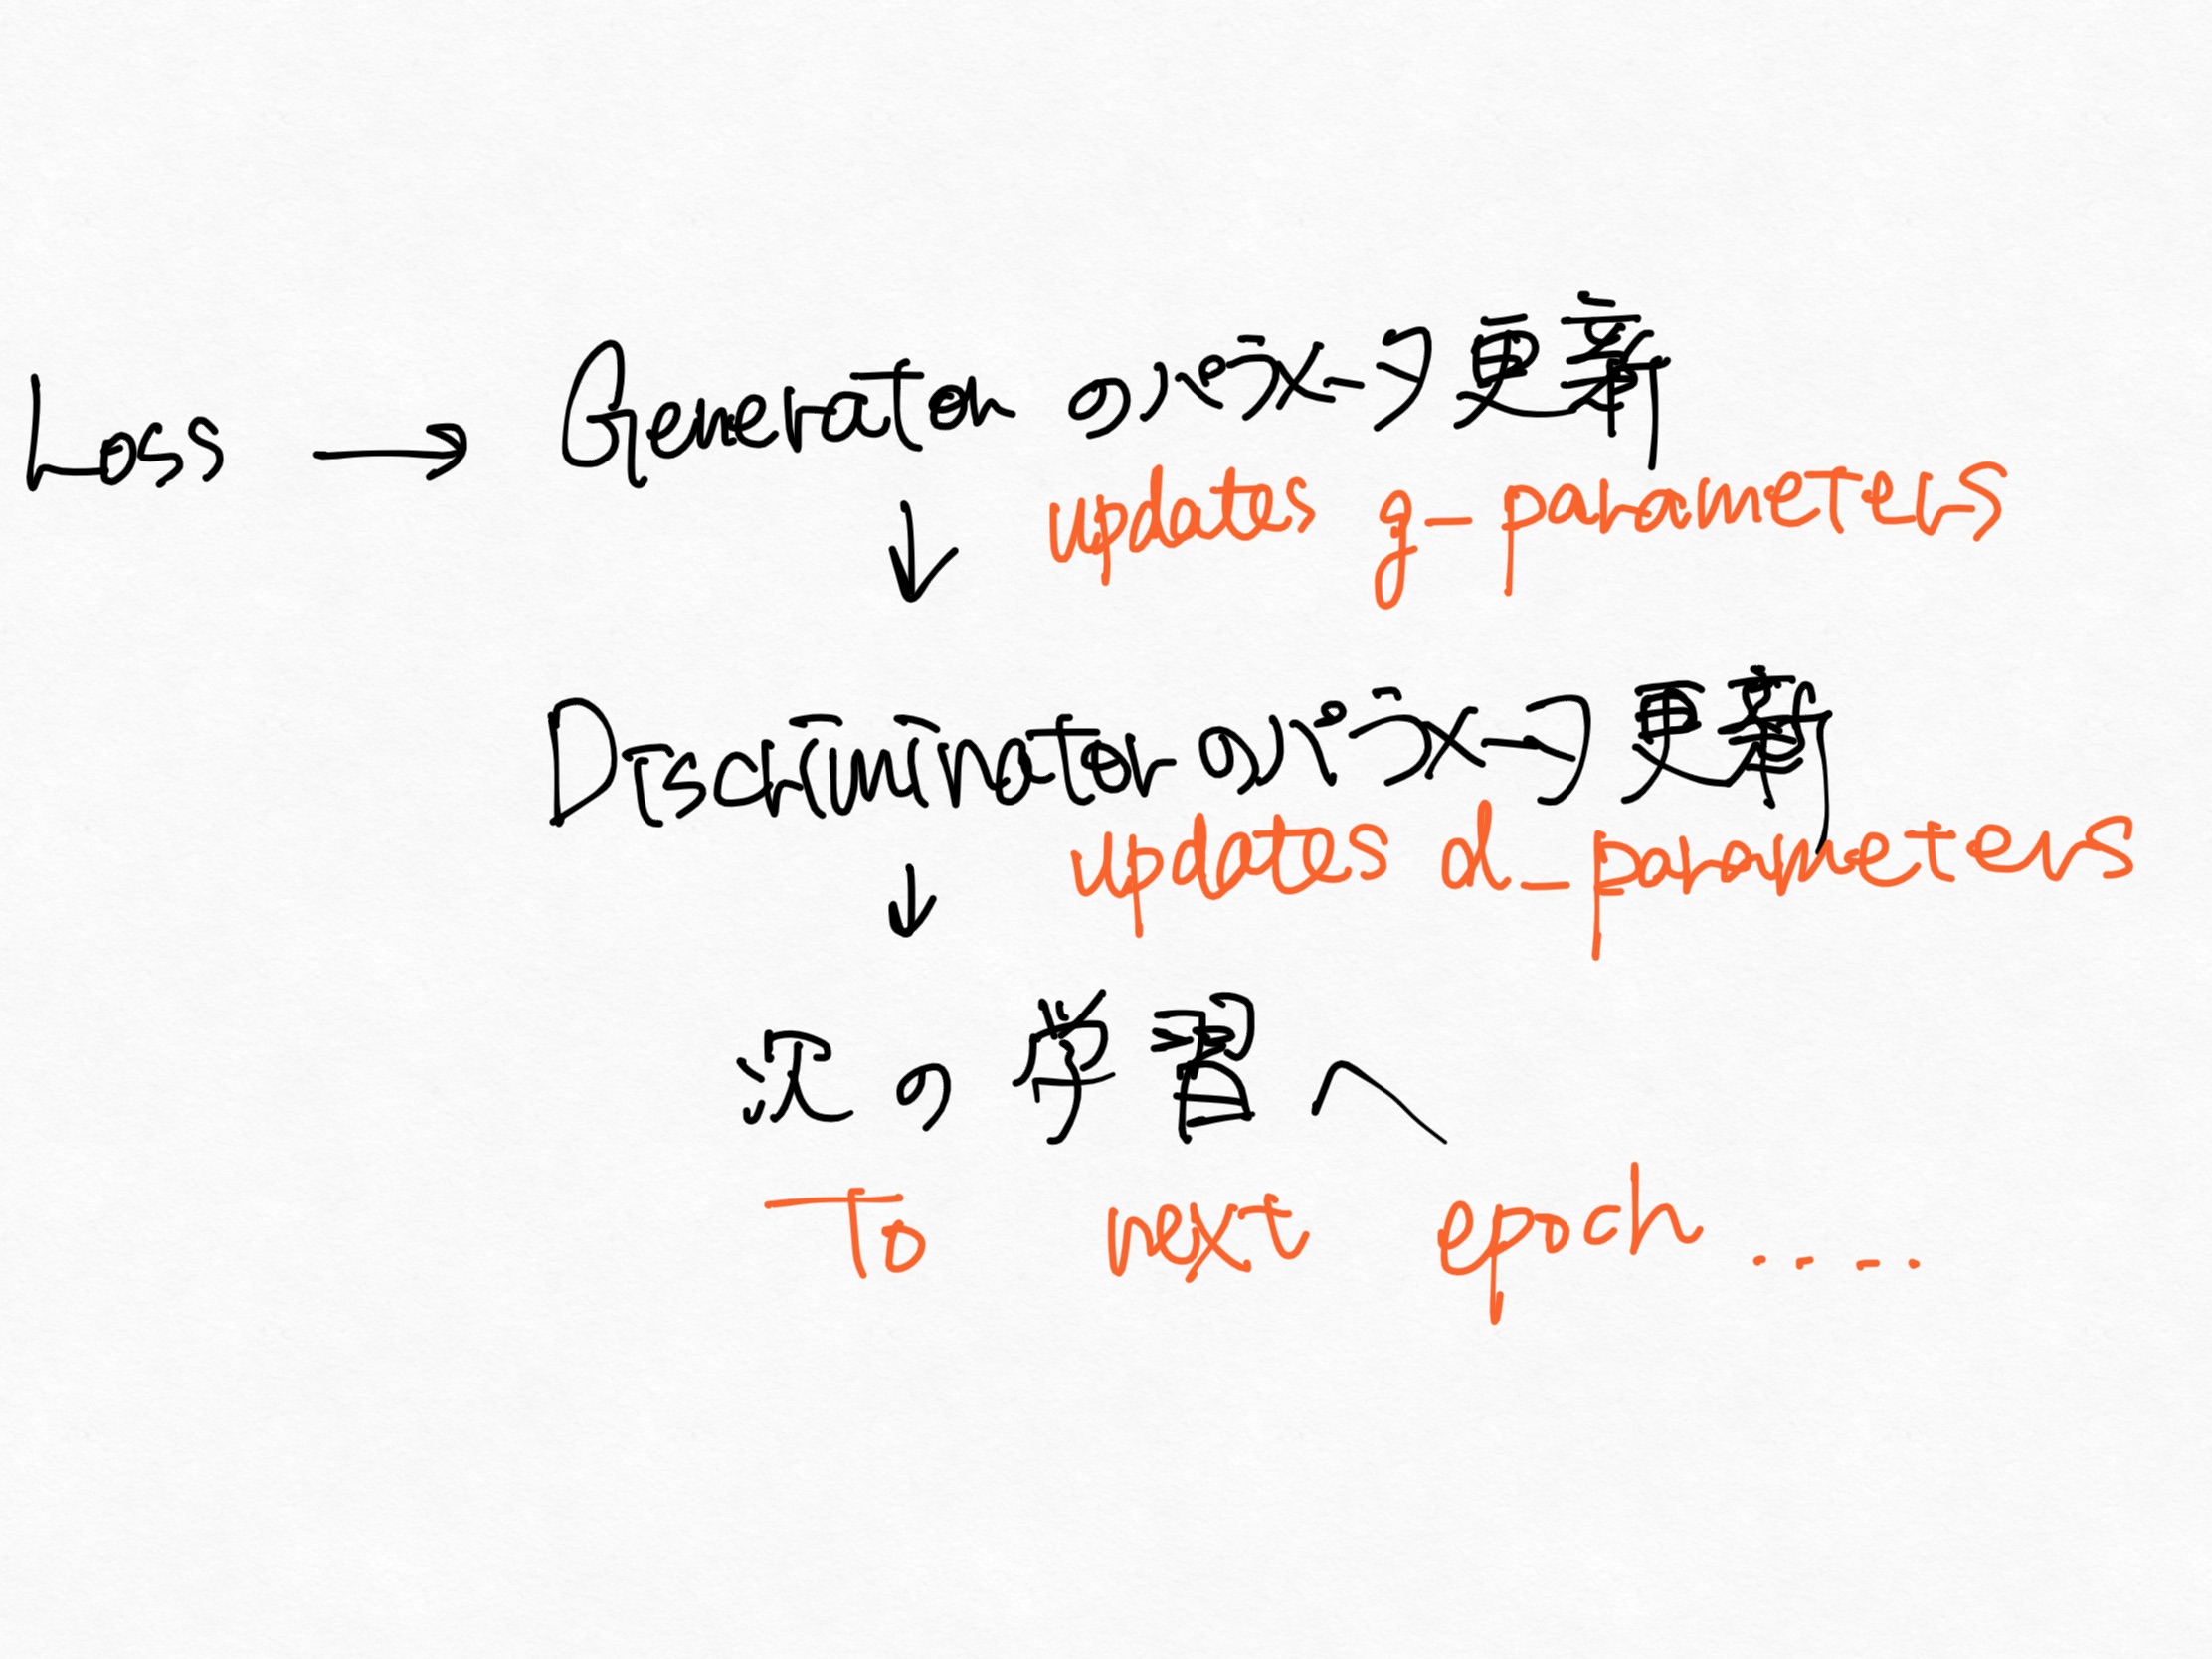 Loss → Generator のパラメータ更新
updates g_parameters
↓
Discriminatorのパラメータ更新
updates d_parameters
↓
次の学習へ
To next epoch ....